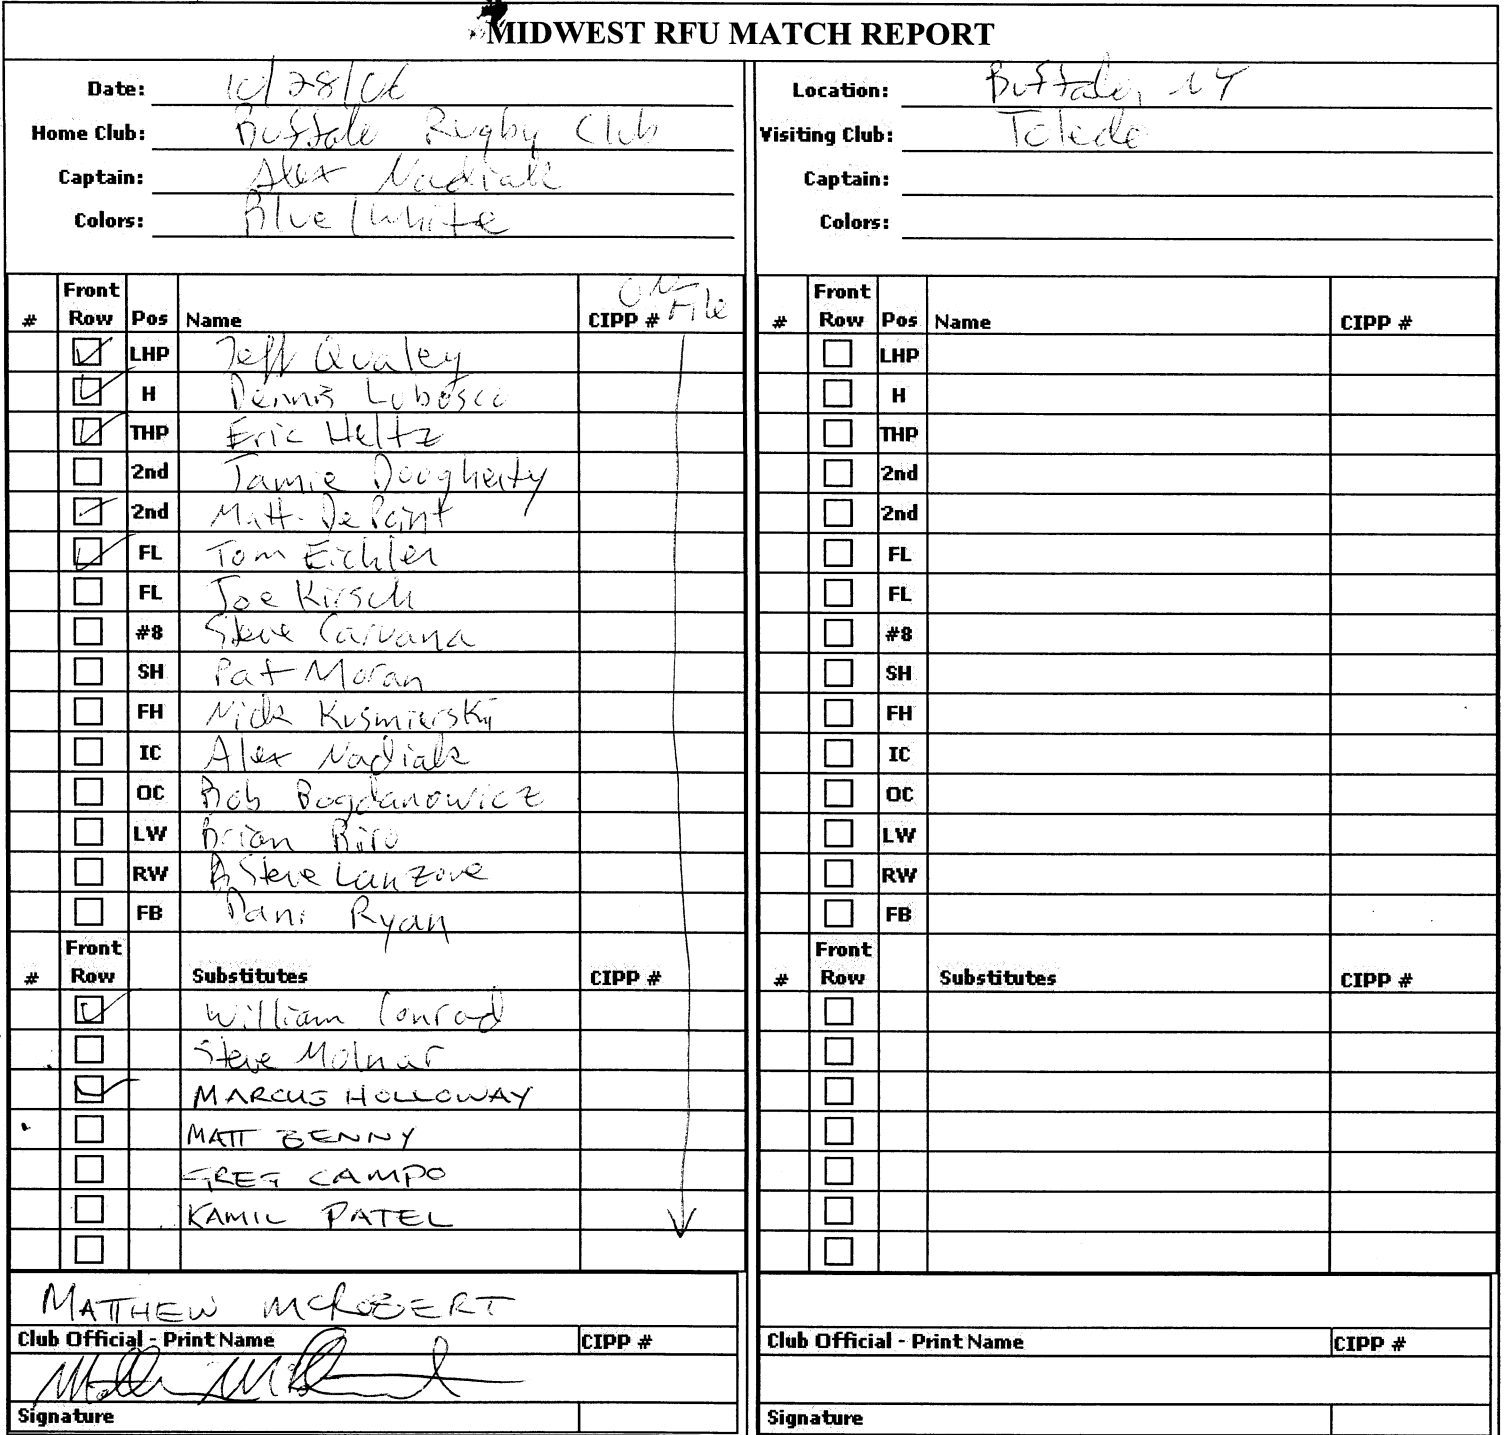 MIDWEST RFU MATCH REPORT
Date: 10/28/06
Home Club: Buffalo Rugby Club
Captain: Alex Nadiak
Colors: Blue/White
Location: Buffalo, NY
Visiting Club: Toledo
Captain:
Colors:
# Front Row Pos Name CIPP # On File
LHP Jeff Qualey
H Dennis Lobosco
THP Eric Heltz
2nd Jamie Dougherty
2nd Matt DePoint
FL Tom Eichler
FL Joe Kirsch
#8 Steve Carvana
SH Pat Moran
FH Nick Kusmierski
IC Alex Nadiak
OC Bob Bogdanowicz
LW Brian Biro
RW Steve Lanzone
FB Dani Ryan
# Front Row Substitutes CIPP #
William Conrad
Steve Molnar
MARCUS HOLLOWAY
MATT BENNY
GREG CAMPO
KAMIL PATEL
MATTHEW MCROBERT
Club Official - Print Name CIPP #
Signature
# Front Row Pos Name CIPP #
LHP
H
THP
2nd
2nd
FL
FL
#8
SH
FH
IC
OC
LW
RW
FB
# Front Row Substitutes CIPP #
Club Official - Print Name CIPP #
Signature